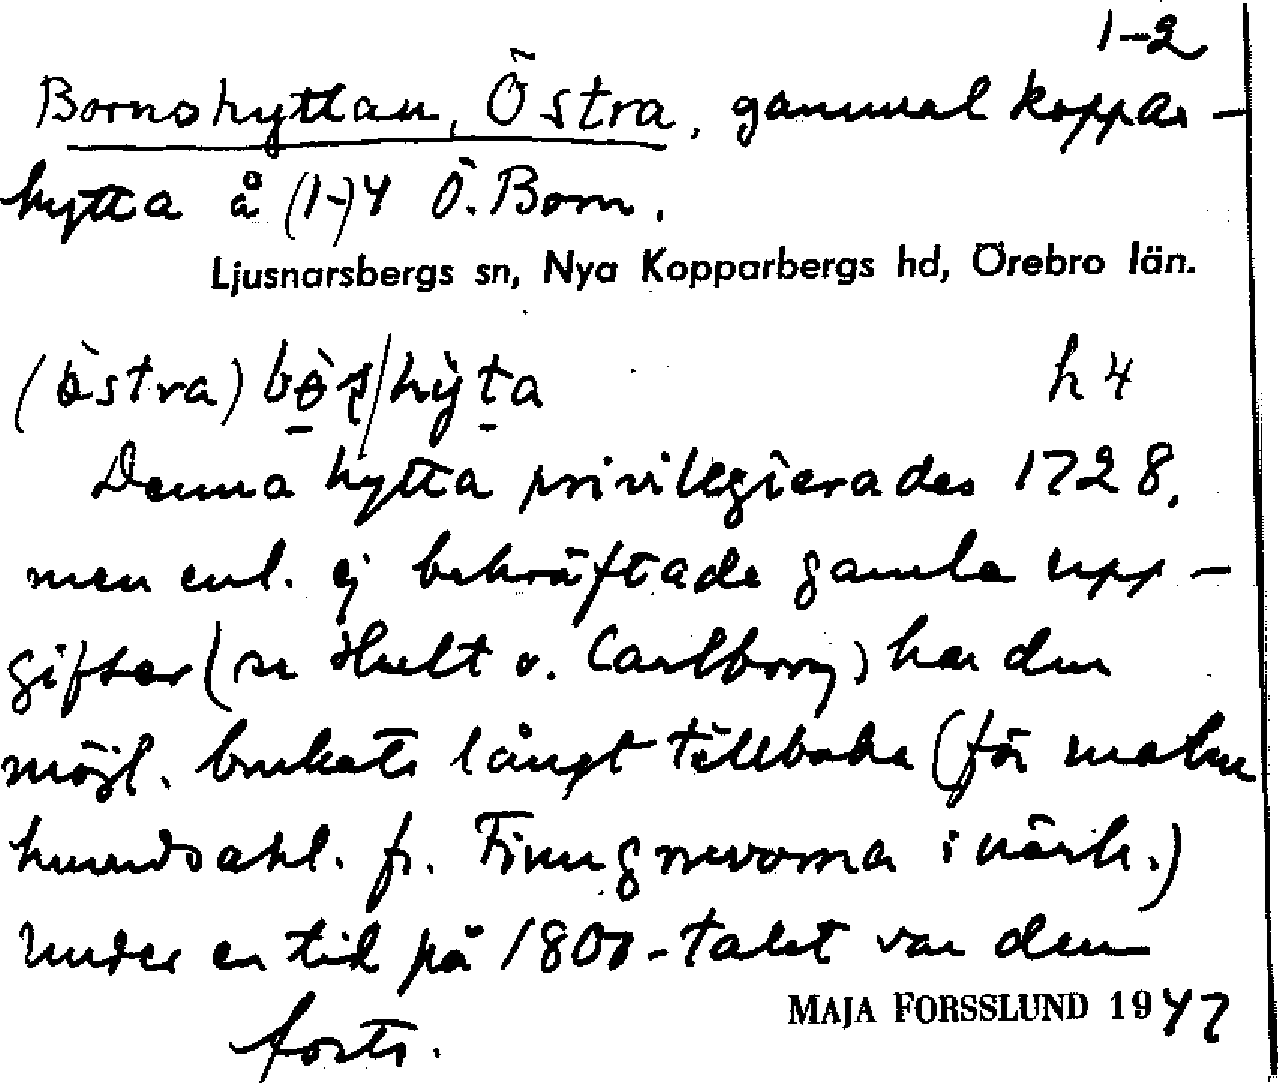 1-2
Bornshyttan, Östra, gammal koppar-
hytta å (1-)4 Ö. Born.
Ljusnarsbergs sn, Nya Kopparbergs hd, Örebro län.
(östra) hyta h 4
Denna hytta privilegierades 1728,
men enl. ej bekräftade gamla upp-
gifter (se Hult o. Carlborg) har den
möjl. brukats långt tillbaka (för malm
huvudsakl. fr. Finngruvorna i närh.)
Under en tid på 1800-talet var den
forts.
MAJA FORSSLUND 1947